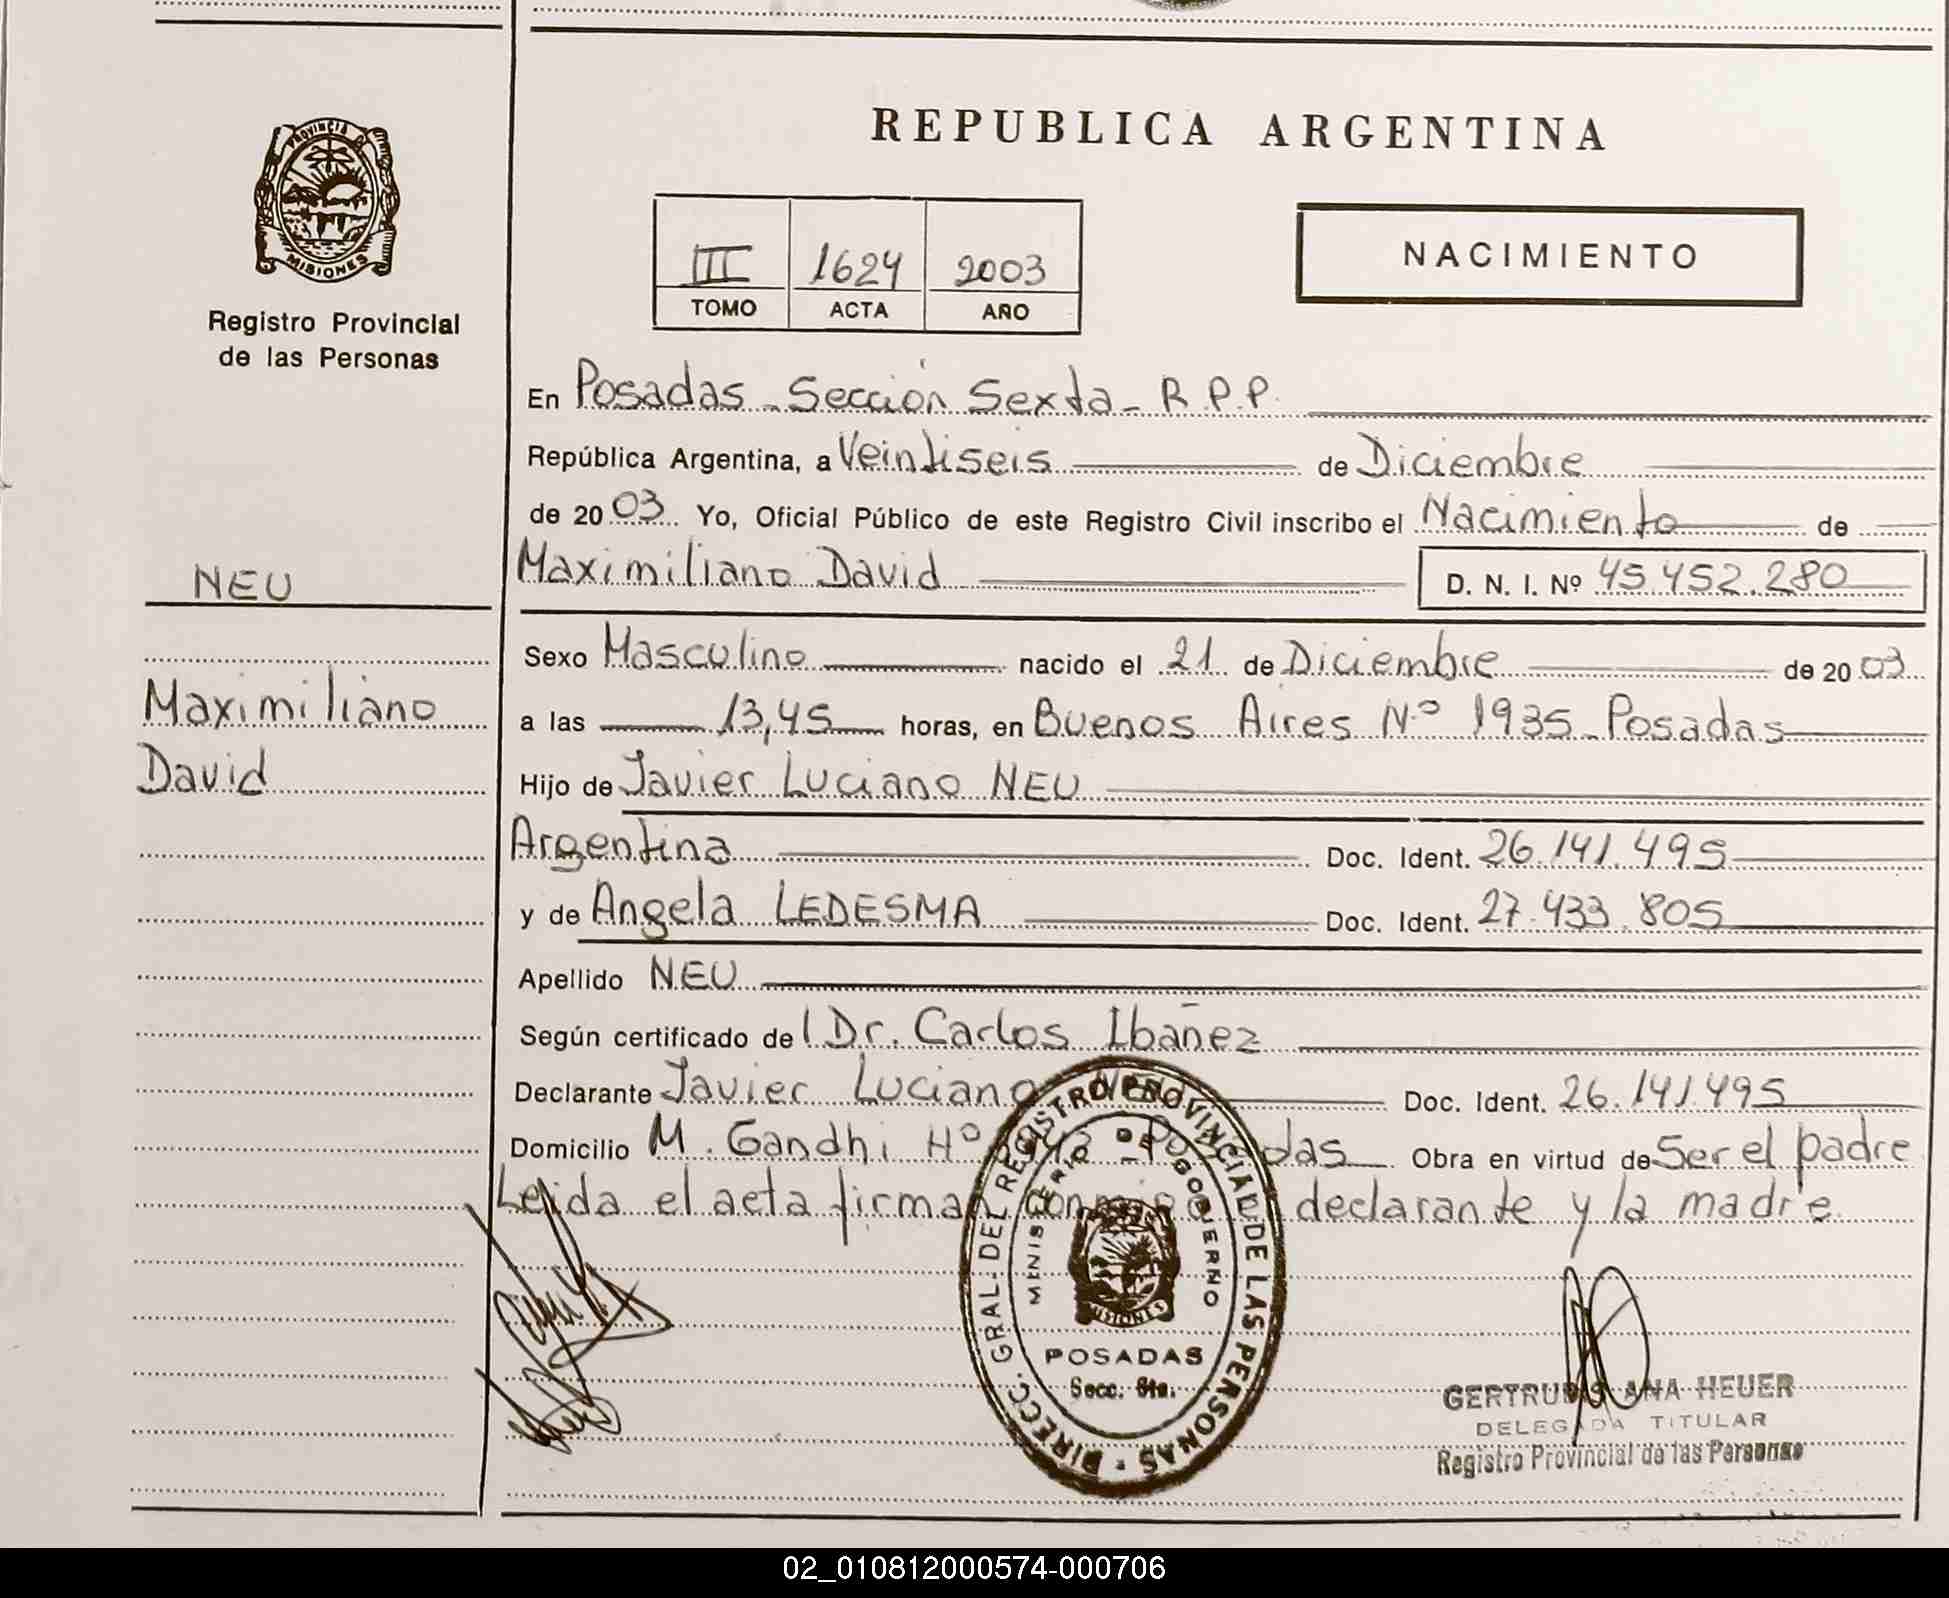 REPUBLICA ARGENTINA
PROVINCIA DE
MISIONES
Registro Provincial
de las Personas
III 1624 2003
TOMO ACTA AÑO
NACIMIENTO
En Posadas - Sección Sexta - R.P.P.
República Argentina, a Veintiseis de Diciembre
de 2003 Yo, Oficial Público de este Registro Civil inscribo el Nacimiento de
Maximiliano David D. N. I. Nº 45.452.280
NEU
Maximiliano
David
Sexo Masculino nacido el 21 de Diciembre de 2003
a las 13,45 horas, en Buenos Aires Nº 1935 - Posadas
Hijo de Javier Luciano NEU
Argentina Doc. Ident. 26.141.495
y de Angela LEDESMA Doc. Ident. 27.433.805
Apellido NEU
Según certificado de l Dr. Carlos Ibañez
Declarante Javier Luciano NEU Doc. Ident. 26.141.495
Domicilio M. Gandhi Nº Posadas Obra en virtud de Ser el padre
Leida el acta firman declarante y la madre
DIRECC. GRAL. DEL REGISTRO PROVINCIAL DE LAS PERSONAS
MINISTERIO DE GOBIERNO
MISIONES
POSADAS
Secc. 6ta.
GERTRUDIS ANA HEUER
DELEGADA TITULAR
Registro Provincial de las Personas
02_010812000574-000706